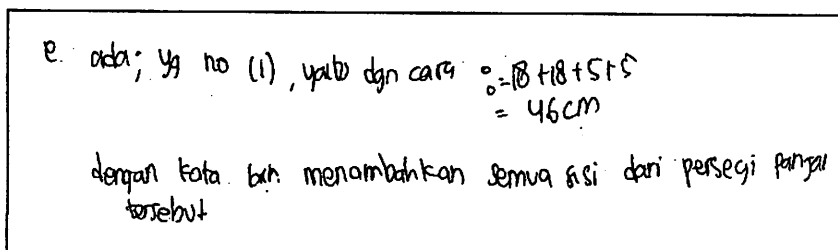 e. ada; yg no (1), yaitu dgn cara : = 18 + 18 + 5 + 5
= 46 cm
dengan kata lain menambahkan semua sisi dari persegi panjang
tersebut